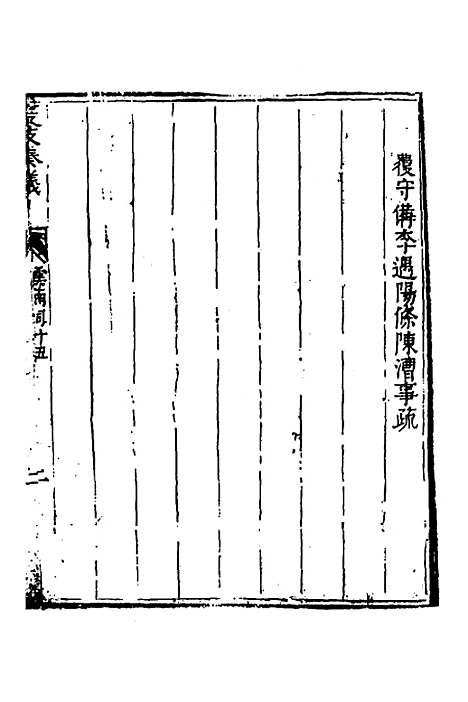 覆守備李遇陽條陳漕事疏
奏議
雲南司十五
二